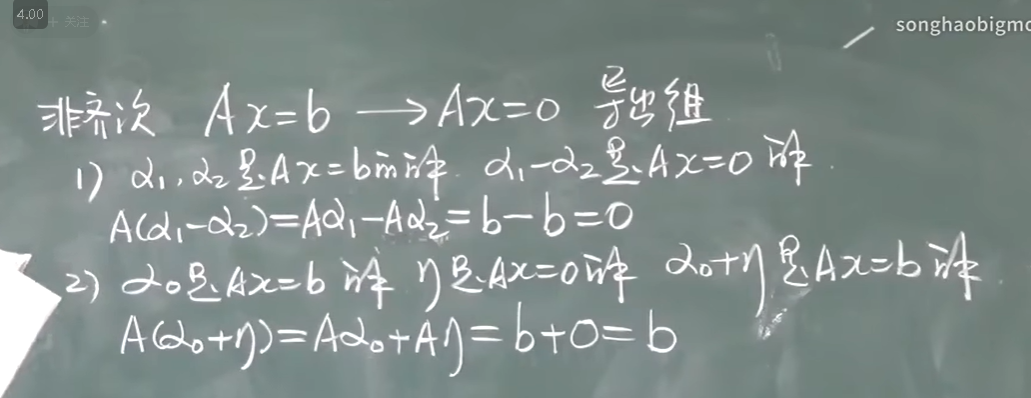 4.00
+ 关注
songhaobigmo
非齐次 Ax=b → Ax=0 导出组
1) α₁,α₂是Ax=b的解. α₁-α₂是Ax=0 解.
A(α₁-α₂)=Aα₁-Aα₂=b-b=0
2) α₀是Ax=b 解 η是Ax=0解 α₀+η是Ax=b解.
A(α₀+η)=Aα₀+Aη=b+0=b